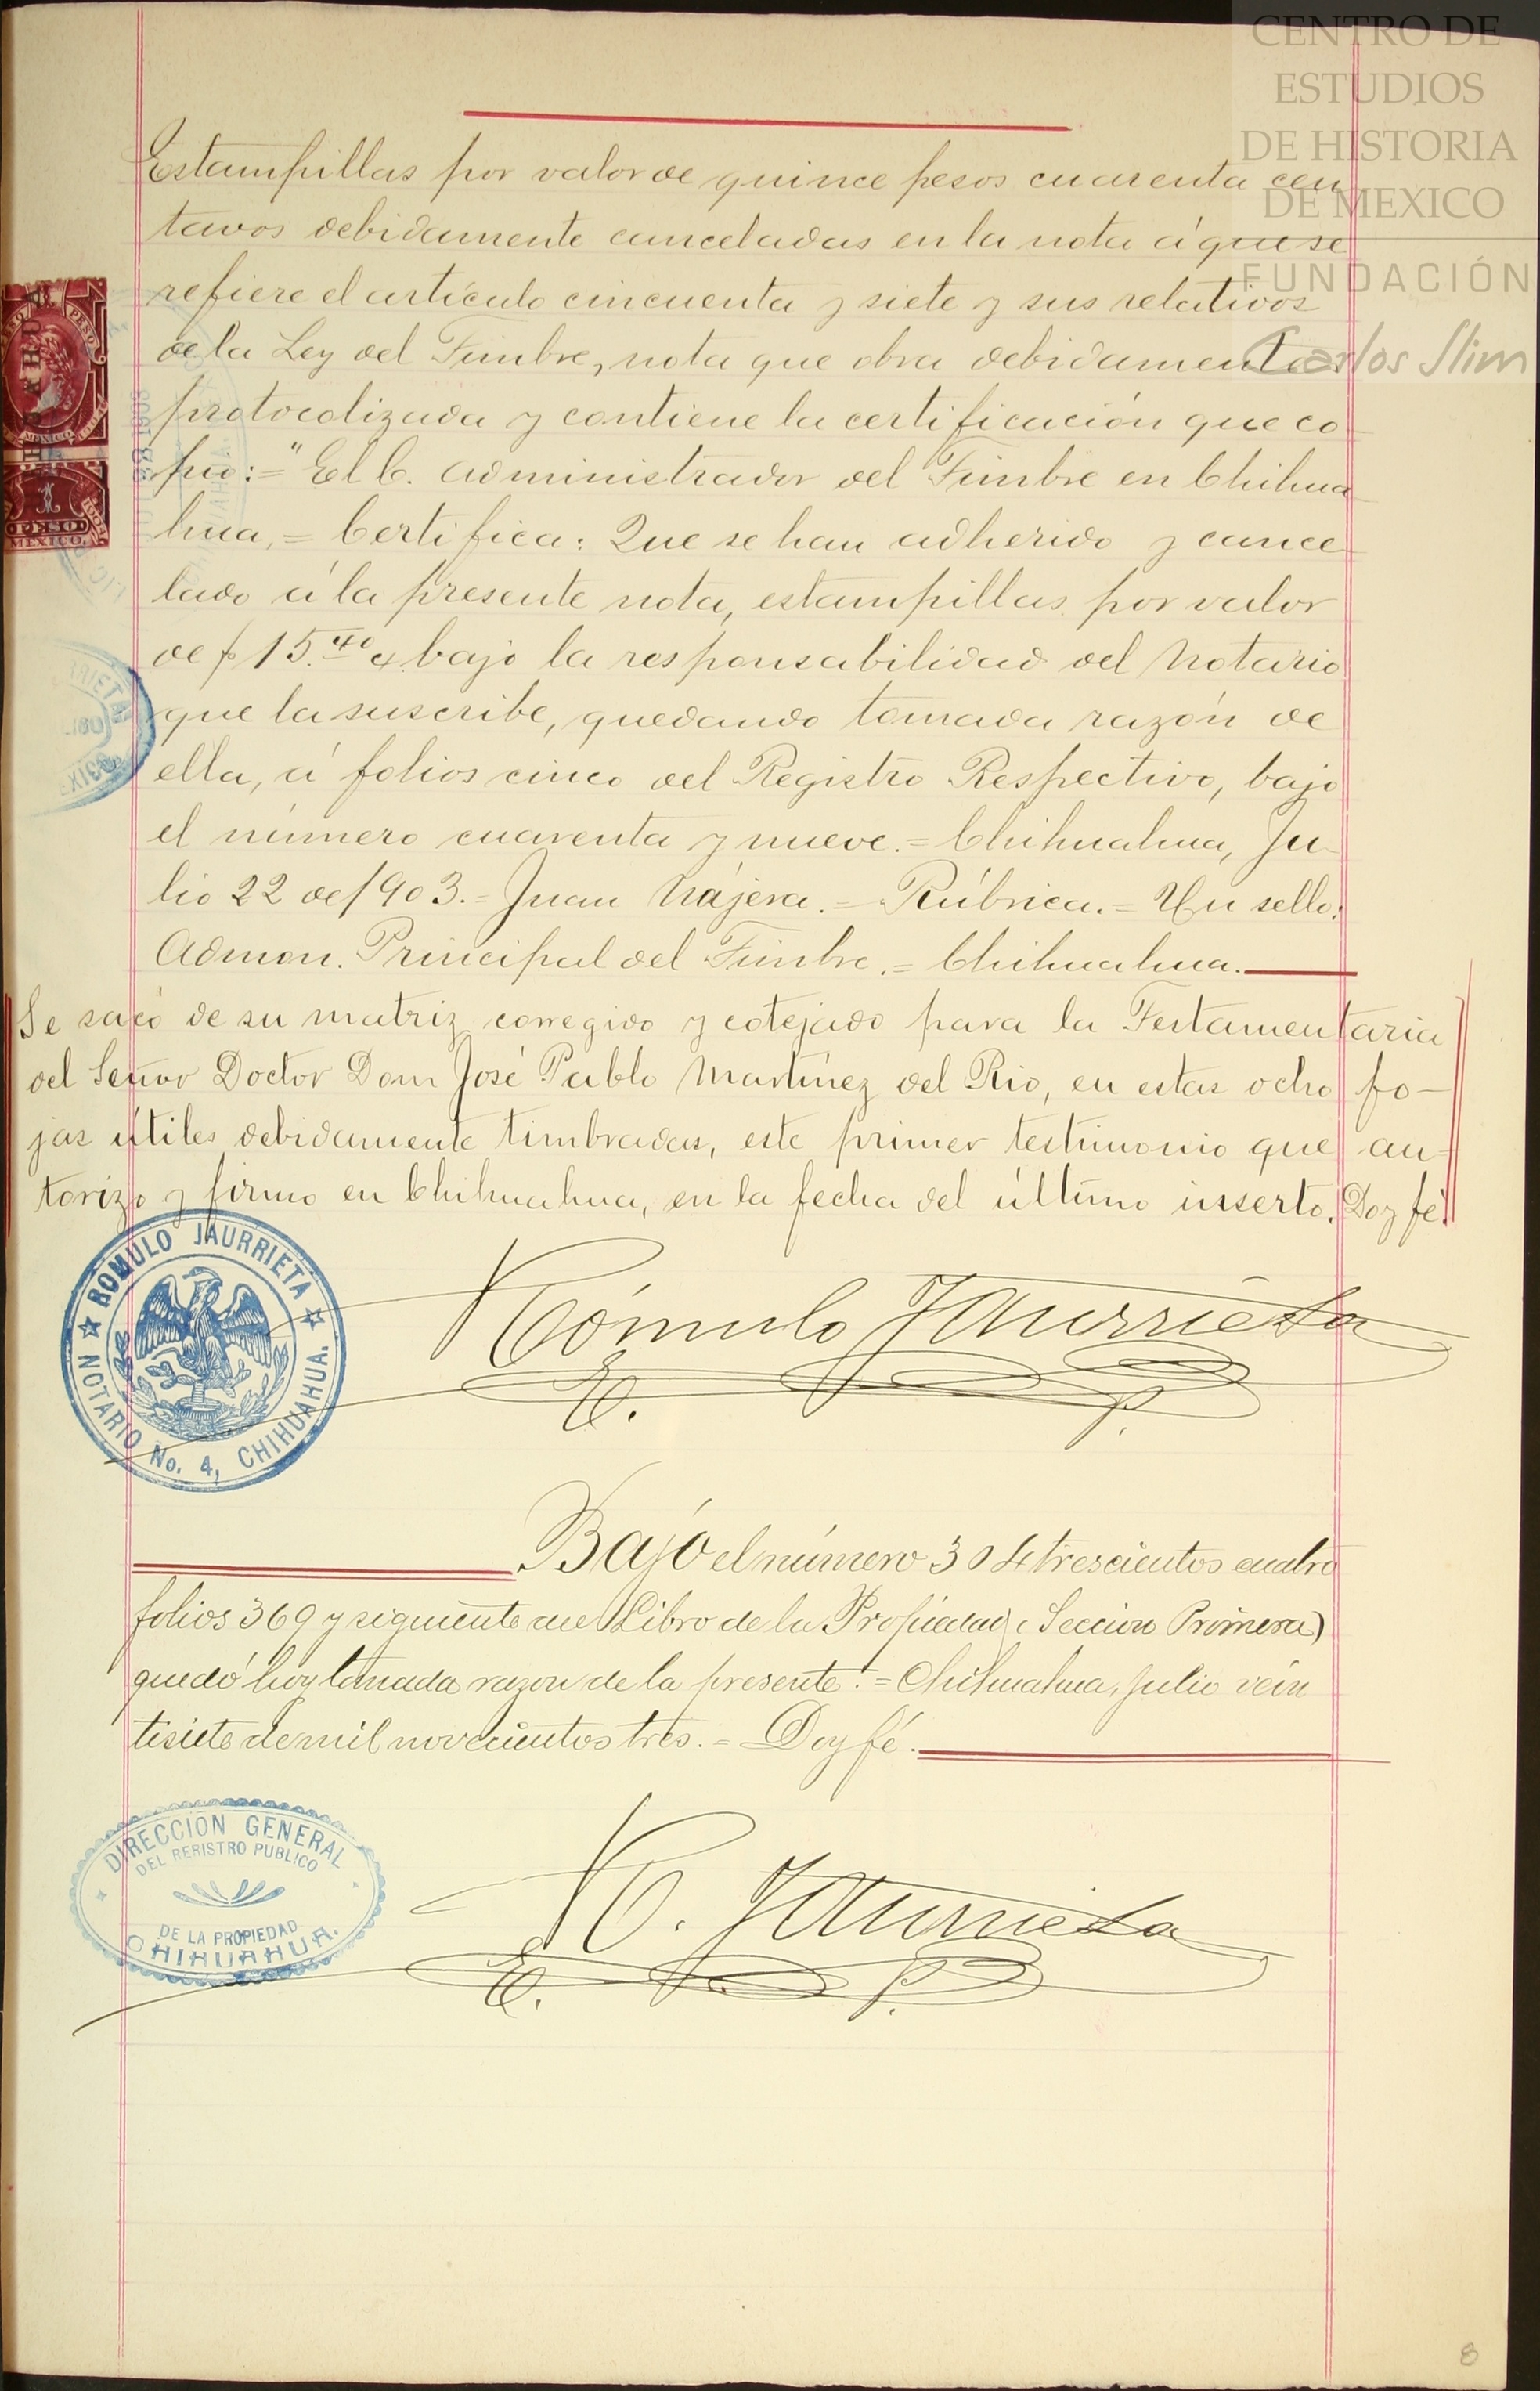 CENTRO DE
ESTUDIOS
DE HISTORIA
DE MEXICO
FUNDACIÓN
Carlos Slim
Estampillas por valor de quince pesos cuarenta cen
tavos debidamente canceladas en la nota á que se
refiere el artículo cincuenta y siete y sus relativos
de la Ley del Timbre, nota que obra debidamente
protocolizada y contiene la certificación que co
pio: = "El C. Administrador del Timbre en Chihua
hua, = Certifica: Que se han adherido y cance
lado á la presente nota, estampillas por valor
de $15.40 bajo la responsabilidad del Notario
que la suscribe, quedando tomada razón de
ella, á folios cinco del Registro Respectivo, bajo
el número cuarenta y nueve. = Chihuahua, Ju
lio 22 de 1903. = Juan Nájera. = Rúbrica. = Un sello:
Admon. Principal del Timbre. = Chihuahua.
Se sacó de su matriz corregido y cotejado para la Testamentaria
del Señor Doctor Don José Pablo Martínez del Rio, en estas ocho fo-
jas útiles debidamente timbradas, este primer testimonio que au-
torizo y firmo en Chihuahua, en la fecha del último inserto. Doy fé.
PESO
MEXICO
1
PESO
MEXICO.
ROMULO JAURRIETA
NOTARIO No. 4, CHIHUAHUA.
Rómulo Jaurrieta
E. P.
Bajo el número 304 trescientos cuatro
folios 369 y siguiente del Libro de la Propiedad (Seccion Primera)
quedó hoy tomada razon de la presente. = Chihuahua, Julio vein
tisiete de mil novecientos tres. = Doy fé.
DIRECCIÓN GENERAL
DEL RERISTRO PUBLICO
DE LA PROPIEDAD
CHIHUAHUA.
R. Jaurrieta
E. P.
8